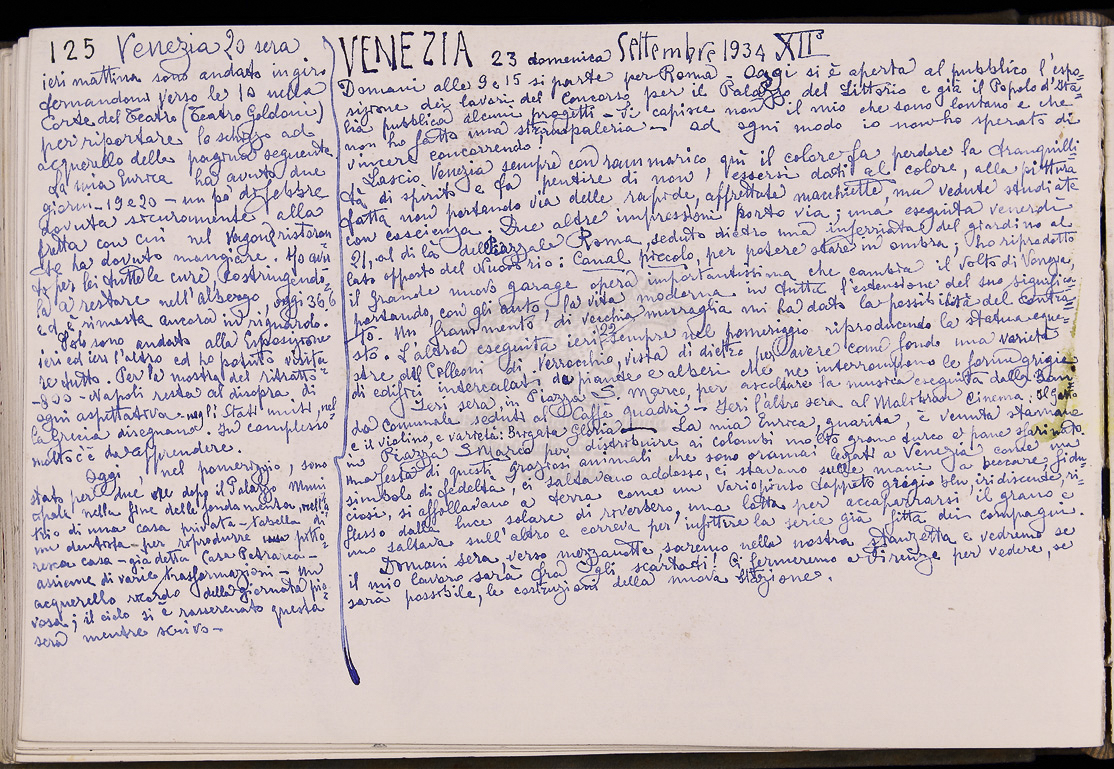 125 Venezia 20 sera
ieri mattina sono andato in giro
fermandomi verso le 10 nella
Corte del Teatro (Teatro Goldoni)
per riportare lo schizzo ad
acquerello della pagina seguente
La mia Enrica ha avuto due
giorni - 19 e 20 - un pò di febbre
dovuta sicuramente alla
fretta con cui nel vagone ristoran=
te ha dovuto mangiare. Ho avu
to per lei tutte le cure, costringendo=
la a restare nell'albergo, oggi 36 6
ed è rimasta ancora in riguardo.
Poi sono andato alla Esposizione
ieri ed ieri l'altro ed ho potuto visita
re tutto. Per la mostra del ritratto
-800- Napoli resta al disopra di
ogni aspettativa - negli Stati Uniti, nel
la Grecia disegnano. In complesso
molto c'è da apprendere.
Oggi nel pomeriggio, sono
stato per due ore dopo il Palazzo Muni
cipale nella fine delle fondamenta, nell'a
trio di una casa privata - Vasella di
un dentista - per riprodurre una pitto=
resca casa - già detta Casa Petrarca -
assieme di varie trasformazioni - Un
acquerello ricordo della giornata pio
vosa; il cielo si è rasserenato questa
sera mentre scrivo -
VENEZIA 23 domenica Settembre 1934 XII°
Domani alle 9 e 15 si parte per Roma - Oggi si è aperta al pubblico l'espo=
sizione dei lavori del Concorso per il Palazzo del Littorio e già il Popolo d'Ita=
lia pubblica alcuni progetti - Si capisce non il mio che sono lontano e che
non ho fatto una strampaleria - ad ogni modo io non ho sperato di
vincere concorrendo!
Lascio Venezia sempre con rammarico qui il colore fa perdere la tranquilli=
tà di spirito e fa pentire di non essersi dati al colore, alla pittura
fatta non portando via delle rapide, affrettate macchiette, ma vedute studiate
con coscienza. Due altre impressioni porto via; una eseguita venerdì
21, al di là del Piazzale Roma, seduto dietro una inferriata del giardino al
lato opposto del Nuovo rio: Canal piccolo, per potere stare in ombra; ho riprodotto
il grande nuovo garage opera importantissima che cambia il volto di Venezia,
portando, con gli auto, la vita moderna in tutta l'estensione del suo signifi=
to. Un frammento di vecchia muraglia mi ha dato la possibilità del contra=
sto. L'altra eseguita ieri 22 sempre nel pomeriggio riproducendo la statua eque=
stre del Colleoni di Verrocchio, vista di dietro per avere come fondo una varietà
di edifici intercalati da piante e alberi che ne interrompono le forme grigie
Ieri sera, in Piazza S. Marco, per ascoltare la musica eseguita dalla Ban=
da Comunale seduti al Caffe Quadri - Ieri l'altro sera al Malibran Cinema: Il gatto
e il violino, e varietà: Brigata Gloria - La mia Enrica, guarita, è venuta stamane
in Piazza S. Marco per distribuire ai colombi molto grano turco e pane sfarinato.
Una festa di questi graziosi animali che sono oramai legati a Venezia come un
simbolo di fedeltà, ci saltavano addosso, ci stavano sulle mani a beccare, fidu=
ciosi, si affollavano a terra come un variopinto tappeto grigio blu, iridiscente, ri=
flesso dalla luce solare di riverbero, una lotta per accaparrarsi il grano e
uno saltava sull'altro e correva per infittire la serie già fitta dei compagni.
Domani sera, verso mezzanotte saremo nella nostra stanzetta e vedremo se
il mio lavoro sarà fra gli scartati! Ci fermeremo a Firenze per vedere, se
sarà possibile, le costruzioni della nuova stazione.